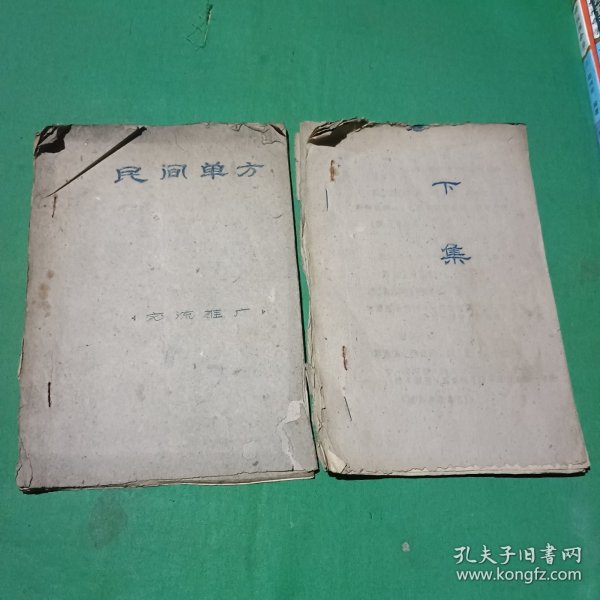 民间单方
交流推广
下
集
孔夫子旧书网
www.kongfz.com